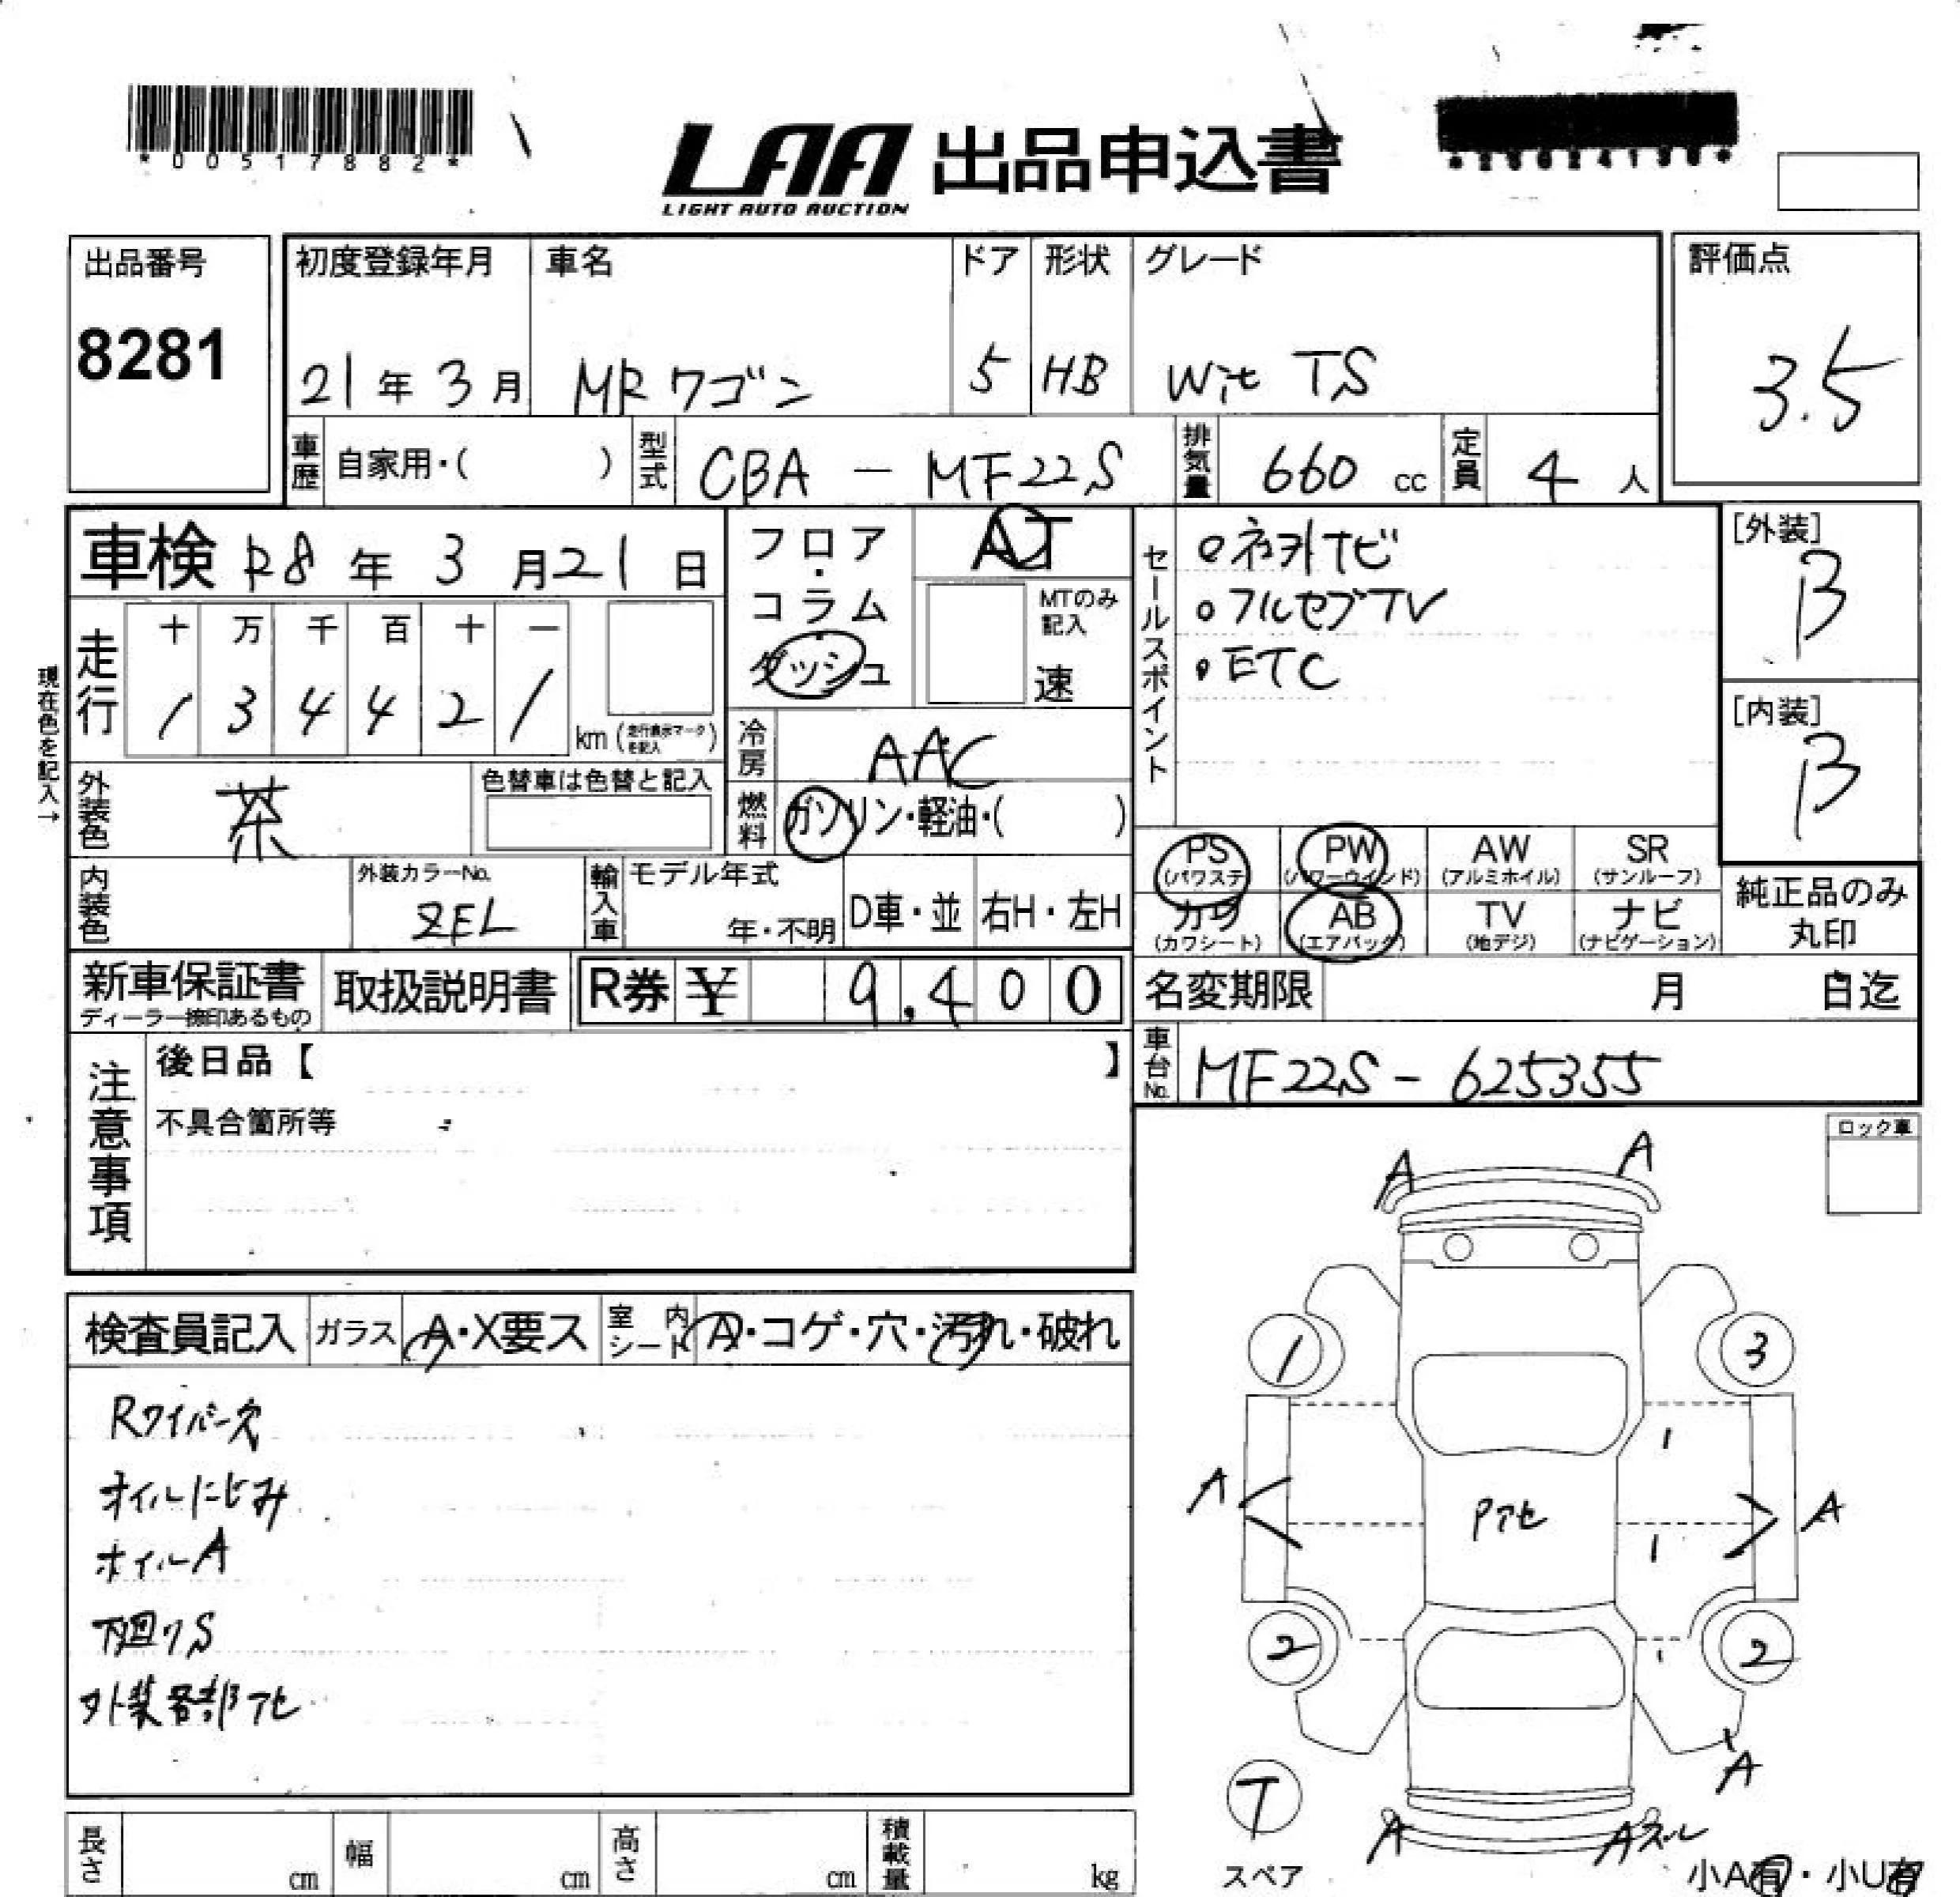 *00517882*
LAA 出品申込書
LIGHT AUTO AUCTION
出品番号
8281
初度登録年月 車名 ドア 形状 グレード
21年3月 MRワゴン 5 HB Wit TS
評価点
3.5
車歴 自家用・( ) 型式 CBA - MF22S 排気量 660 cc 定員 4 人
車検 R8年3月21日
フロア・コラム
ダッシュ
AT
MTのみ記入
速
セールスポイント
ネオトナビ
フルセグTV
ETC
[外装]
B
[内装]
B
現在色を記入→
走行
十 万 千 百 十 一
1 3 4 4 2 1 km (走行表示マークを記入)
冷房 AAC
外装色 茶 色替車は色替と記入
燃料 ガソリン・軽油・( )
PS (パワステ) PW (パワーウインド) AW (アルミホイル) SR (サンルーフ)
カワ (カワシート) AB (エアバック) TV (地デジ) ナビ (ナビゲーション)
純正品のみ丸印
内装色 外装カラーNo. ZEL 輸入車 モデル年式 年・不明 D車・並 右H・左H
新車保証書 ディーラー捺印あるもの 取扱説明書 R券 ¥ 9,400
名変期限 月 日迄
車台No. MF22S - 625355
注意事項
後日品【 】
不具合箇所等
ロック車
検査員記入 ガラス A・X要ス 室内シート A・コゲ・穴・汚れ・破れ
Rワイパー穴
オイルにじみ
ホイルA
下廻りS
外装各部アセ
A A
1 3
1
A Pアセ A
1
2 2
A
T
スペア
A A
小A有・小U有
長さ cm 幅 cm 高さ cm 積載量 kg